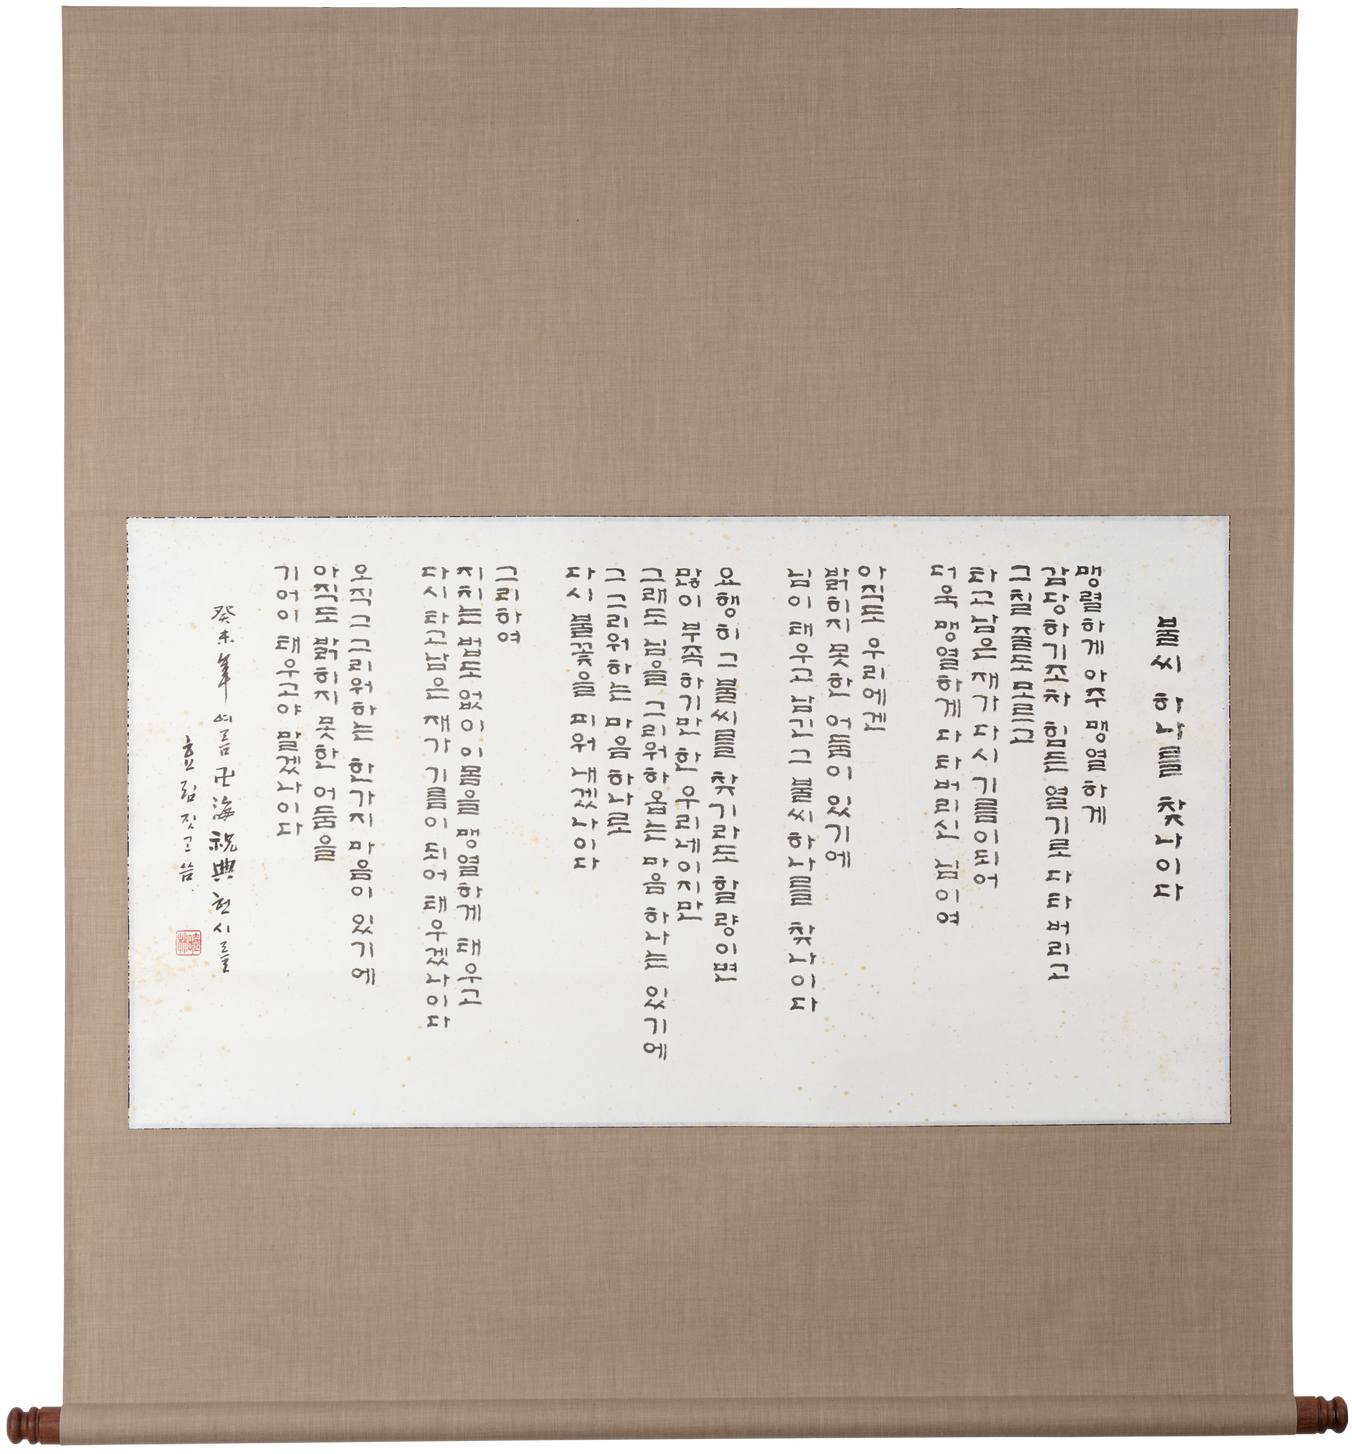 불씨 하나를 찾나이다
맹렬하게 아주 맹열하게
감당하기조차 힘든 열기로 다 타버리고
그칠줄도모르고
타고남은재가 다시 기름이되어
더욱 맹열하게 다 타버리신 님이여
아직도 우리에겐
밝히지 못한 어둠이 있기에
님이 태우고 남긴 그 불씨 하나를 찾나이다
요행히 그 불씨를 찾기라도 할량이면
많이 부족하기만 한 우리네이지만
그래도 님을 그리워하옵는 마음 하나는 있기에
그 그리워하는 마음 하나로
다시 불꽃을 피워 내겠나이다
그리하여
지치는 법도 없이 이몸을 맹열하게 태우고
다시 타고남은 재가 기름이 되어 태우겠나이다
오직 그 그리워하는 한가지 마음이 있기에
아직도 밝히지 못한 어둠을
기어이 태우고야 말겠나이다
癸未年 여름 卍海祝典 헌시를
효림 짓고 씀